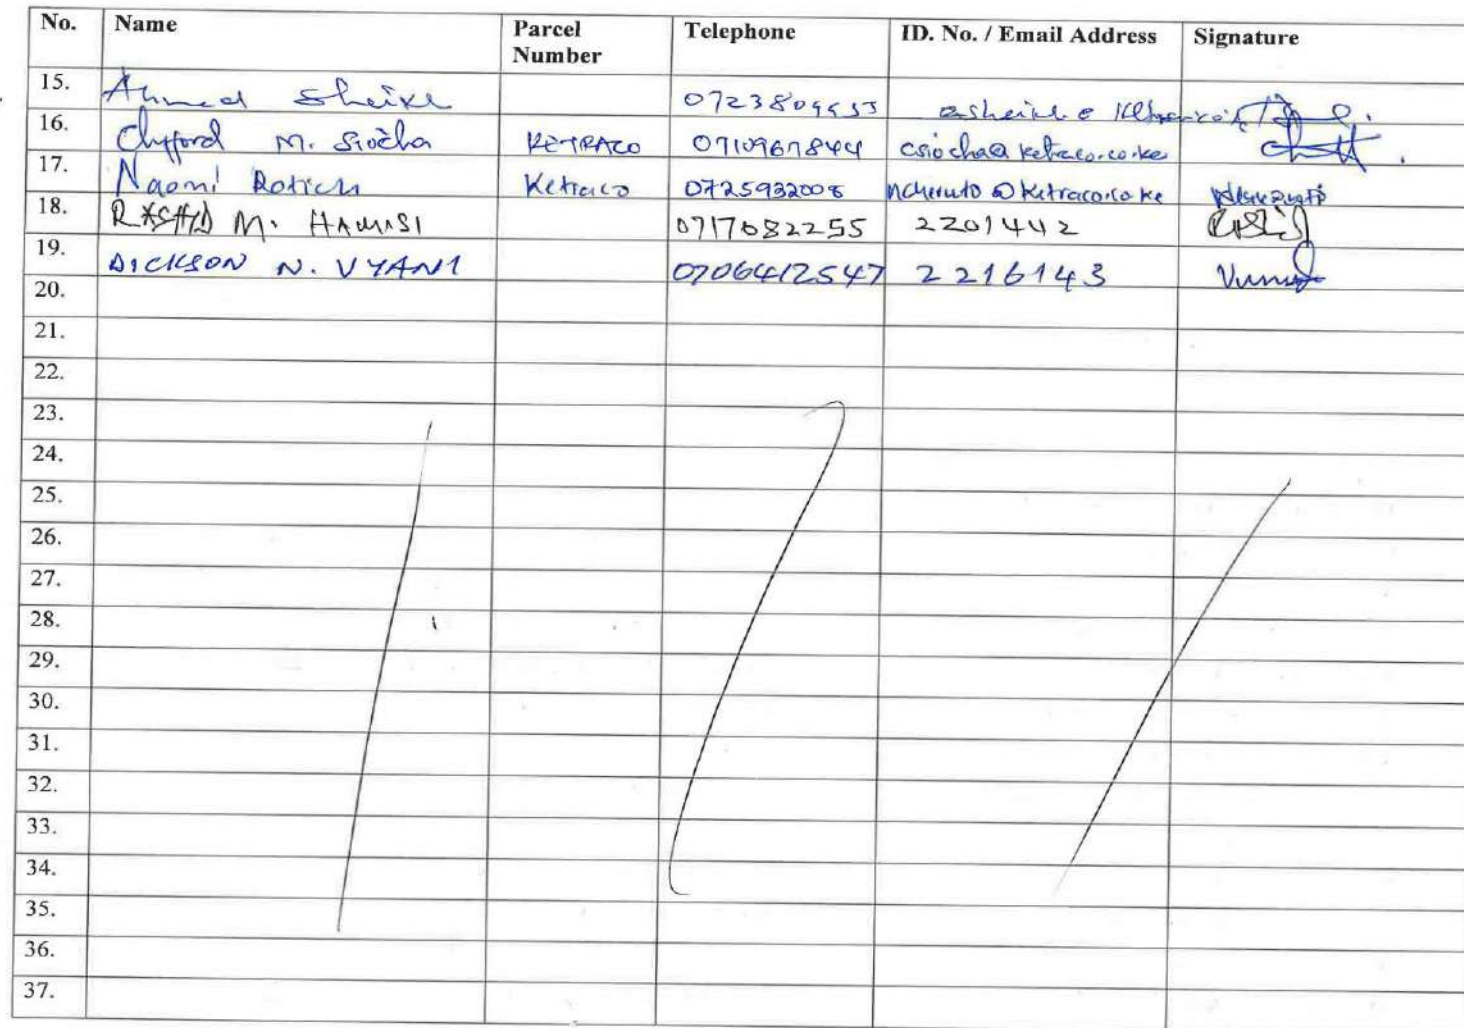 No. Name Parcel Number Telephone ID. No. / Email Address Signature
15. Ahmed Sheikh 0723809553
16. Clyfford M. Siocha KETRACO 0710967844 csiocha@ketraco.co.ke
17. Naomi Rotich Ketraco 0725932008 ncheruto@ketraco.co.ke
18. RASHID M. HAMISI 0717082255 2201442
19. DICKSON N. VYANI 0706412547 2216143
20.
21.
22.
23.
24.
25.
26.
27.
28.
29.
30.
31.
32.
33.
34.
35.
36.
37.